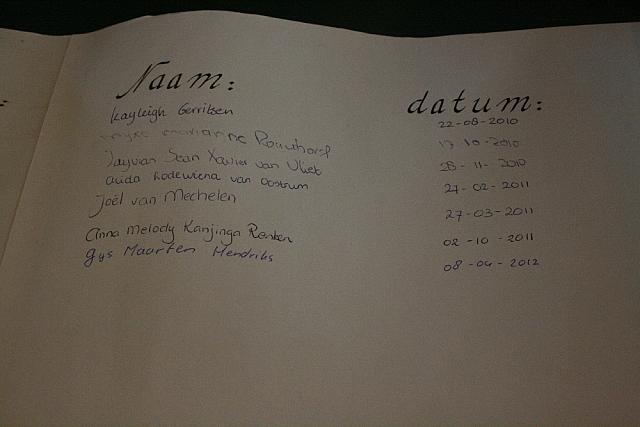 Naam: datum:
Kayleigh Gerritsen 22-08-2010
Marianne 17-10-2010
Jayvian Sean Xavier van Vliet 28-11-2010
Lodewiena van Oostrum 27-02-2011
Joël van Mechelen 27-03-2011
Anna Melody Kanjinga Renken 02-10-2011
Gys Maarten Hendriks 08-04-2012